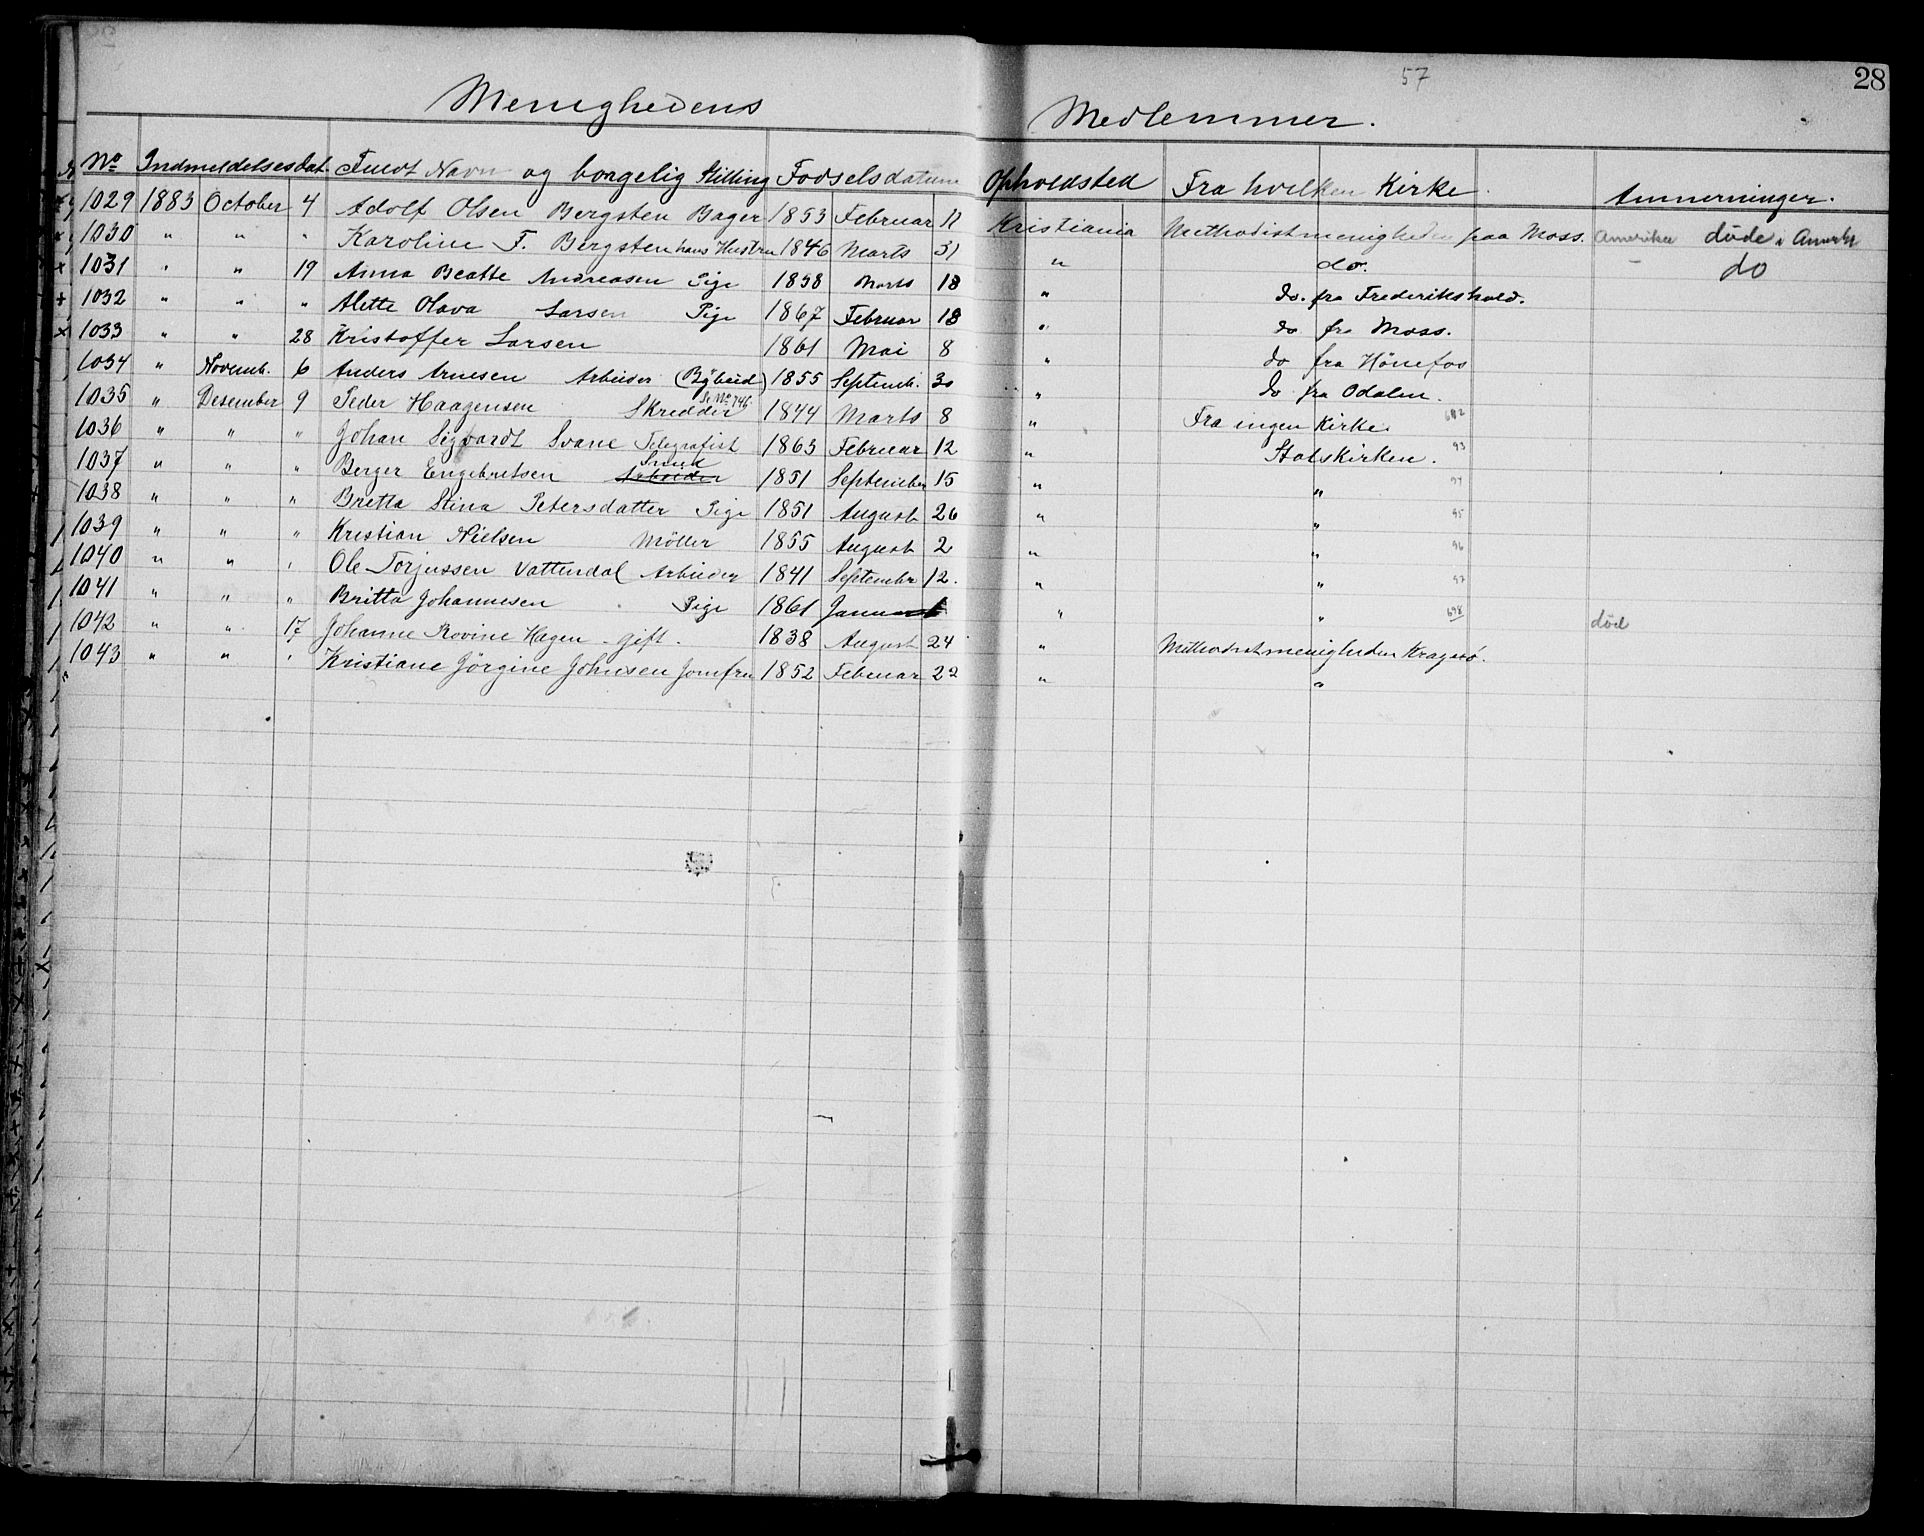 57
28
Menighedens Medlemmer.
No Indmeldelsesdat. Fuldt Navn og borgelig Stilling Fødselsdatum Opholdsted Fra hvilken Kirke Anmerninger.
1029 1883 October 4 Adolf Olsen Bergsten Bager 1853 Februar 11 Kristiania Methodistmenigheden paa Moss. Amerika døde i
1030 " " " Karoline F. Bergsten hans Hustru 1846 Marts 31 " do. do
1031 " " 19 Anna Beatte Andreasen Pige 1858 Marts 18 " do. fra Frederikshald.
1032 " " " Alette Olava Larsen Pige 1867 Februar 18 " do fra Moss.
1033 " " 28 Kristoffer Larsen 1861 Mai 8 " do fra Hönefos
1034 " Novemb. 6 Anders Arnesen Arbeider 1855 Septemb. 30 " do fra Odalen.
1035 " Desember 9 Peder Haagensen Skredder Se No 746 1844 Marts 8 " Fra ingen Kirke. 692
1036 " " " Johan Sigvardt Svane Telegrafist 1863 Februar 12 " Statskirken. 93
1037 " " " Berger Engebretsen Arbeider Smed 1851 September 15 " " 94
1038 " " " Bretta Stina Petersdatter Pige 1851 August 26 " " 95
1039 " " " Kristian Nielsen Möller 1855 August 2 " " 96
1040 " " " Ole Torjussen Vattendal Arbeider 1841 Septembr 12. " " 97
1041 " " " Britta Johannesen Pige 1861 Januar " " 698 död
1042 " " 17 Johanne Rovine Hagen - gift. 1838 August 24 " Methodistmenigheden Kragerö.
1043 " " " Kristiane Jörgine Johnsen Jomfru 1852 Februar 22 " "